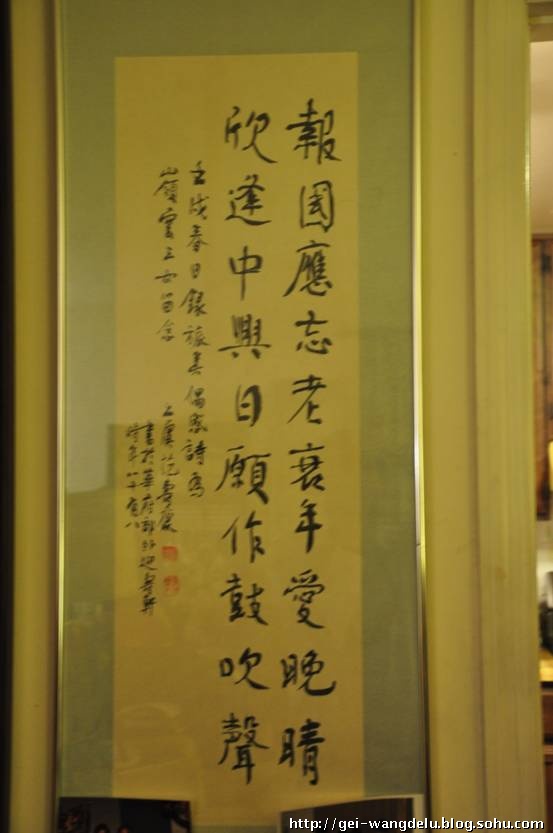 報國應忘老衰年愛晚晴
欣逢中興日願作鼓吹聲
壬戌春日錄旅美偶感詩為
嶺雲三女留念
上虞范壽康
書於華府郊外迎壽軒
時年八十有八
http://gei-wangdelu.blog.sohu.com